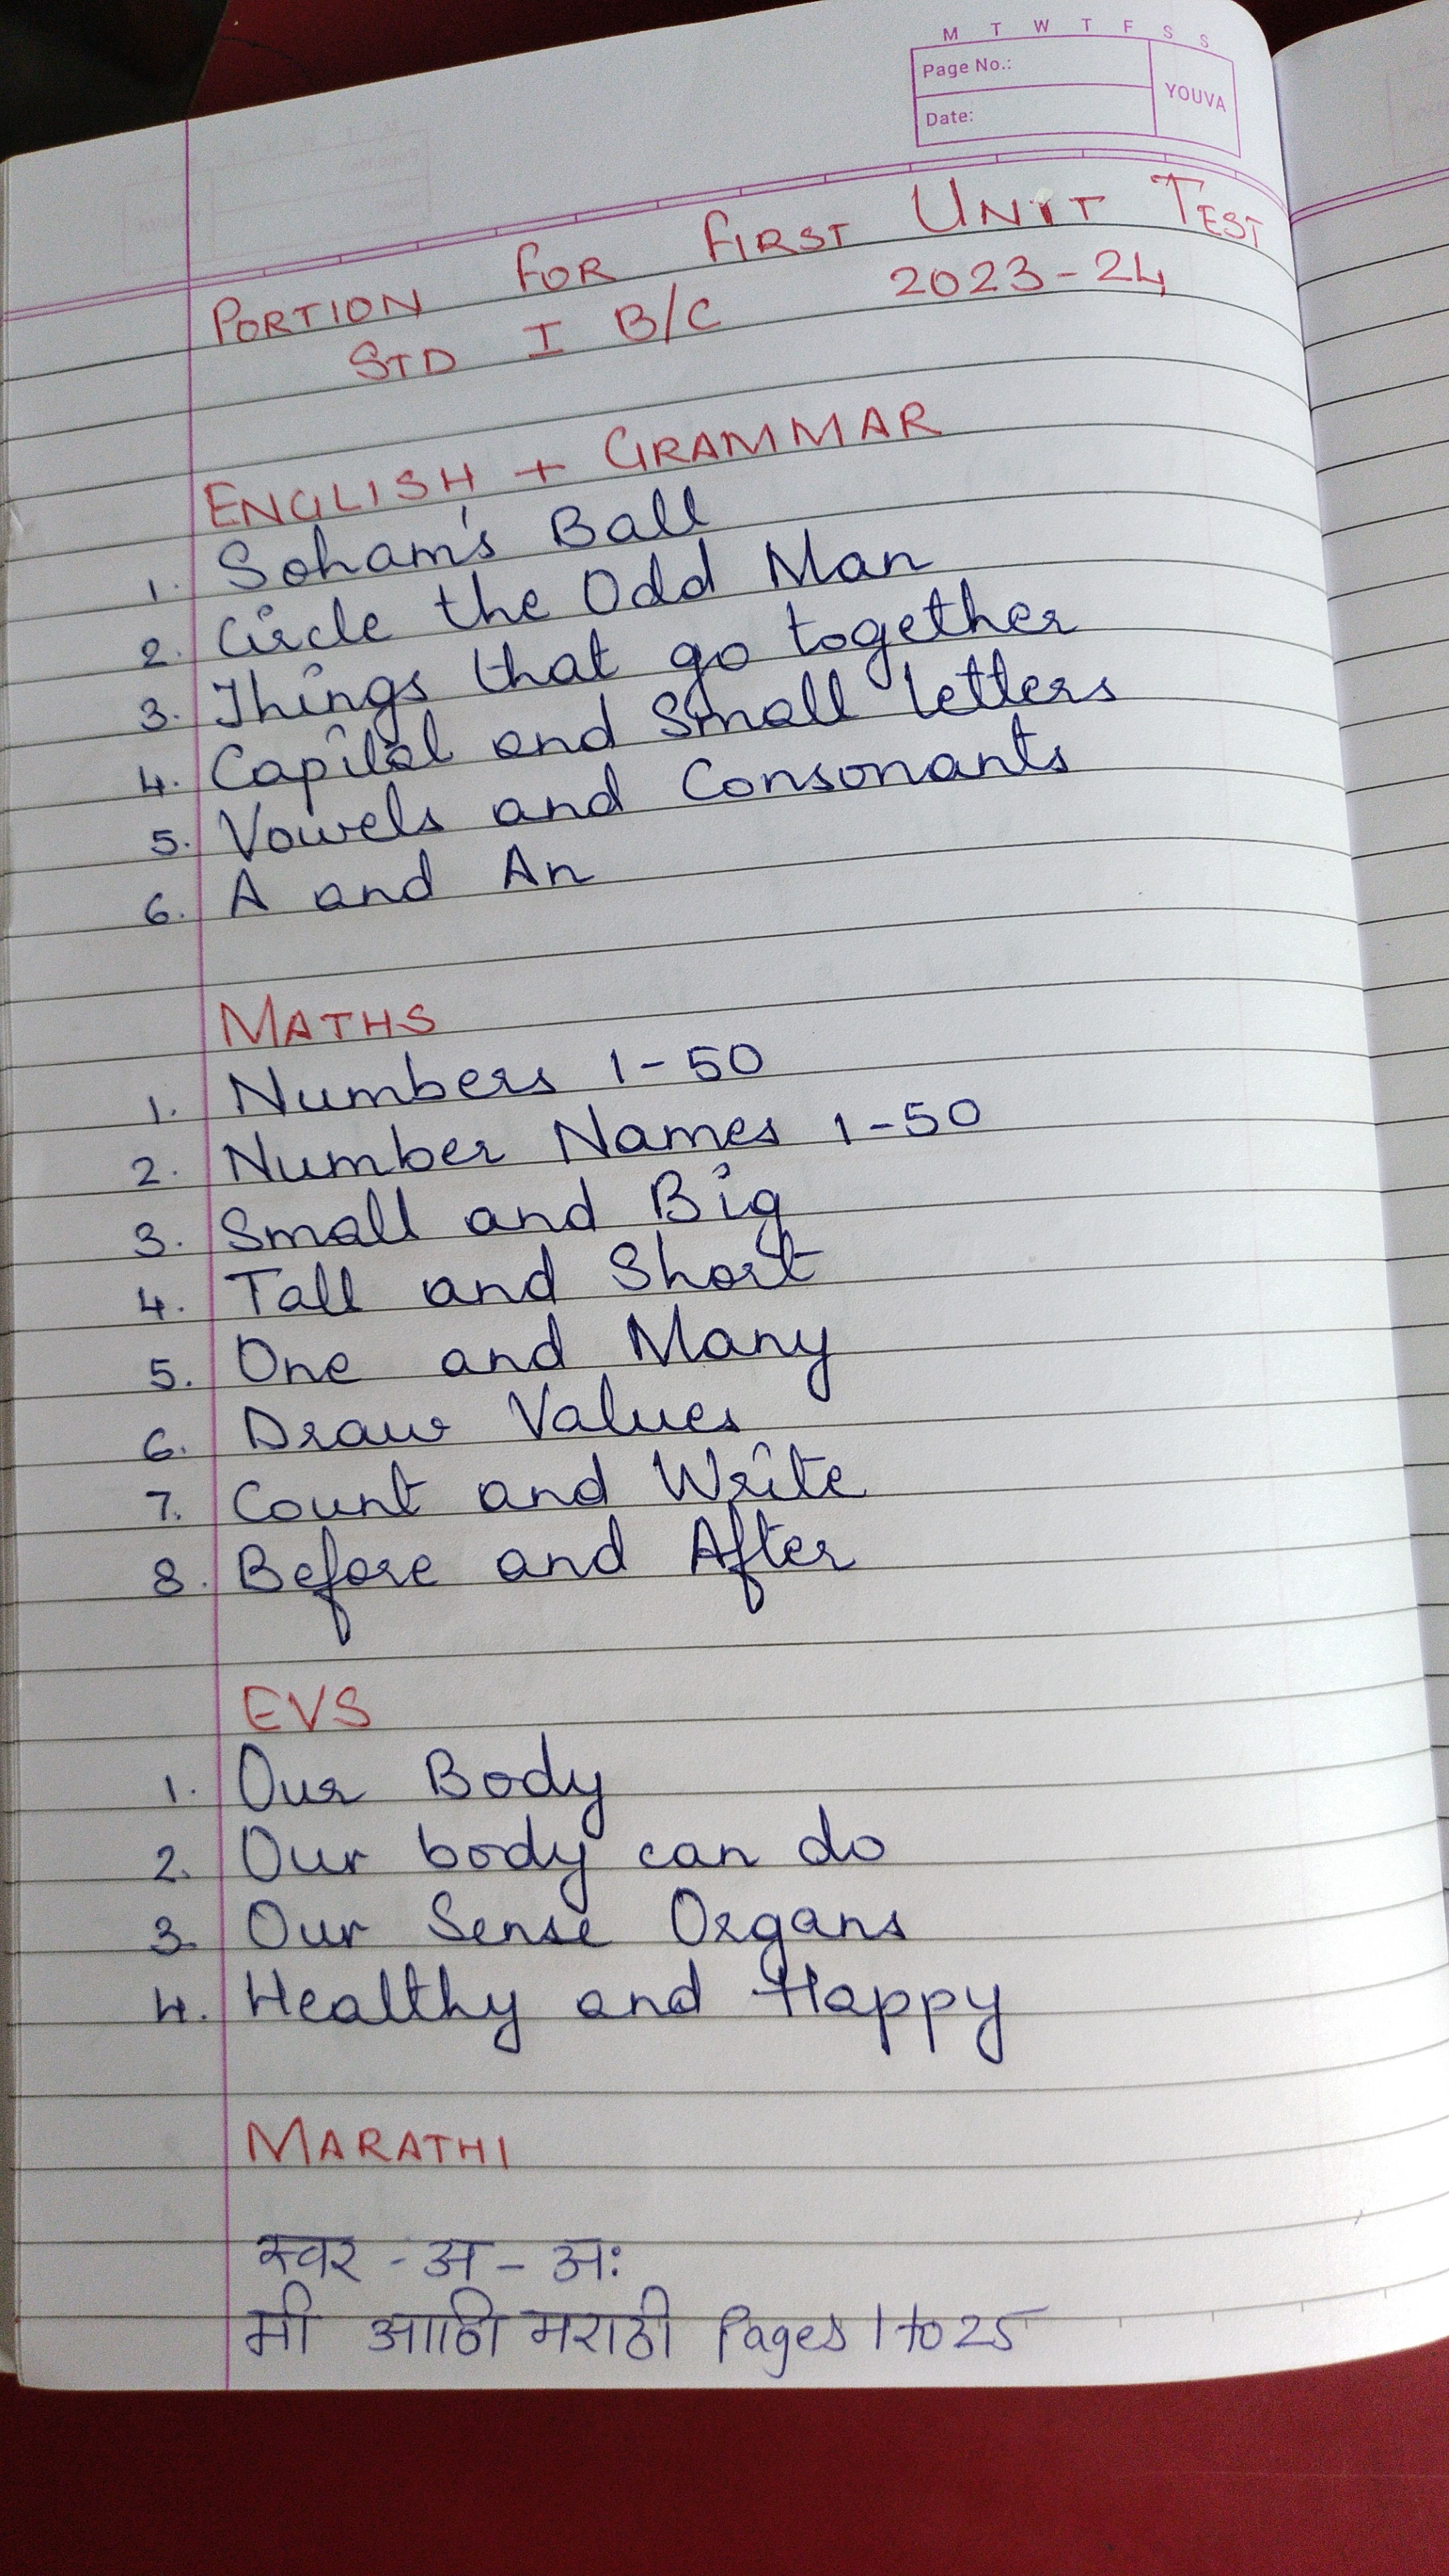 M T W T F S S
Page No.:
YOUVA
Date:
PORTION FOR FIRST UNIT TEST
STD I B/C 2023-24
ENGLISH + GRAMMAR
1. Soham's Ball
2. Circle the Odd Man
3. Things that go together
4. Capital and Small letters
5. Vowels and Consonants
6. A and An
MATHS
1. Numbers 1-50
2. Number Names 1-50
3. Small and Big
4. Tall and Short
5. One and Many
6. Draw Values
7. Count and Write
8. Before and After
EVS
1. Our Body
2. Our body can do
3. Our Sense Organs
4. Healthy and Happy
MARATHI
स्वर - अ - अः
मी आणि मराठी Pages 1 to 25